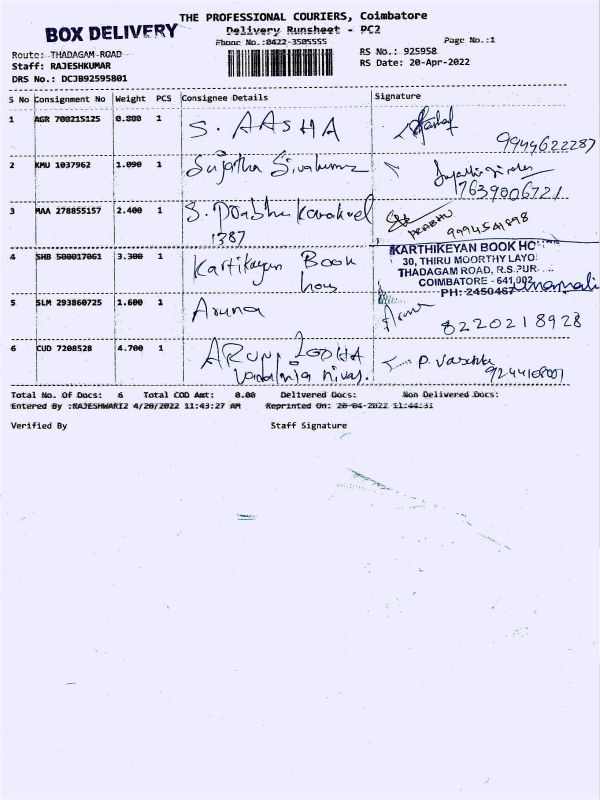 THE PROFESSIONAL COURIERS, Coimbatore
BOX DELIVERY
Delivery Runsheet - PC2
Phone No.:0422-3505555
Page No.:1
Route: THADAGAM ROAD
RS No.: 925958
Staff: RAJESHKUMAR
RS Date: 20-Apr-2022
DRS No.: DCJB92595801
S No Consignment No Weight PCS Consignee Details Signature
1 AGR 700215125 0.800 1 S. AASHA
9944622287
2 KMU 1037962 1.090 1 Sujatha Sivakumar
7639006721
3 MAA 278855157 2.400 1 S. Prabhu
PRABHU
1387
9994541898
4 SHB 500017061 3.300 1 Kartikeyan Book
KARTHIKEYAN BOOK HO
30, THIRU MOORTHY LAYO
THADAGAM ROAD, R.S.PUR
COIMBATORE - 641 002
PH: 2450467
5 SLM 293860725 1.600 1 Aruna
Aruna
8220218928
6 CUD 7208528 4.700 1 ARUN
P.
Total No. Of Docs: 6 Total COD Amt: 0.00 Delivered Docs: Non Delivered Docs:
Entered By :RAJESHWARI2 4/20/2022 11:43:27 AM Reprinted On: 20-04-2022 11:44:31
Verified By Staff Signature